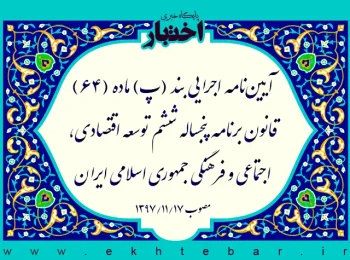 پایگاه خبری
اختبار
آیین‌نامه اجرایی بند (پ) ماده (۶۴)
قانون برنامه پنجساله ششم توسعه اقتصادی،
اجتماعی و فرهنگی جمهوری اسلامی ایران
مصوب ۱۳۹۷/۱۱/۱۷
www.ekhtebar.ir